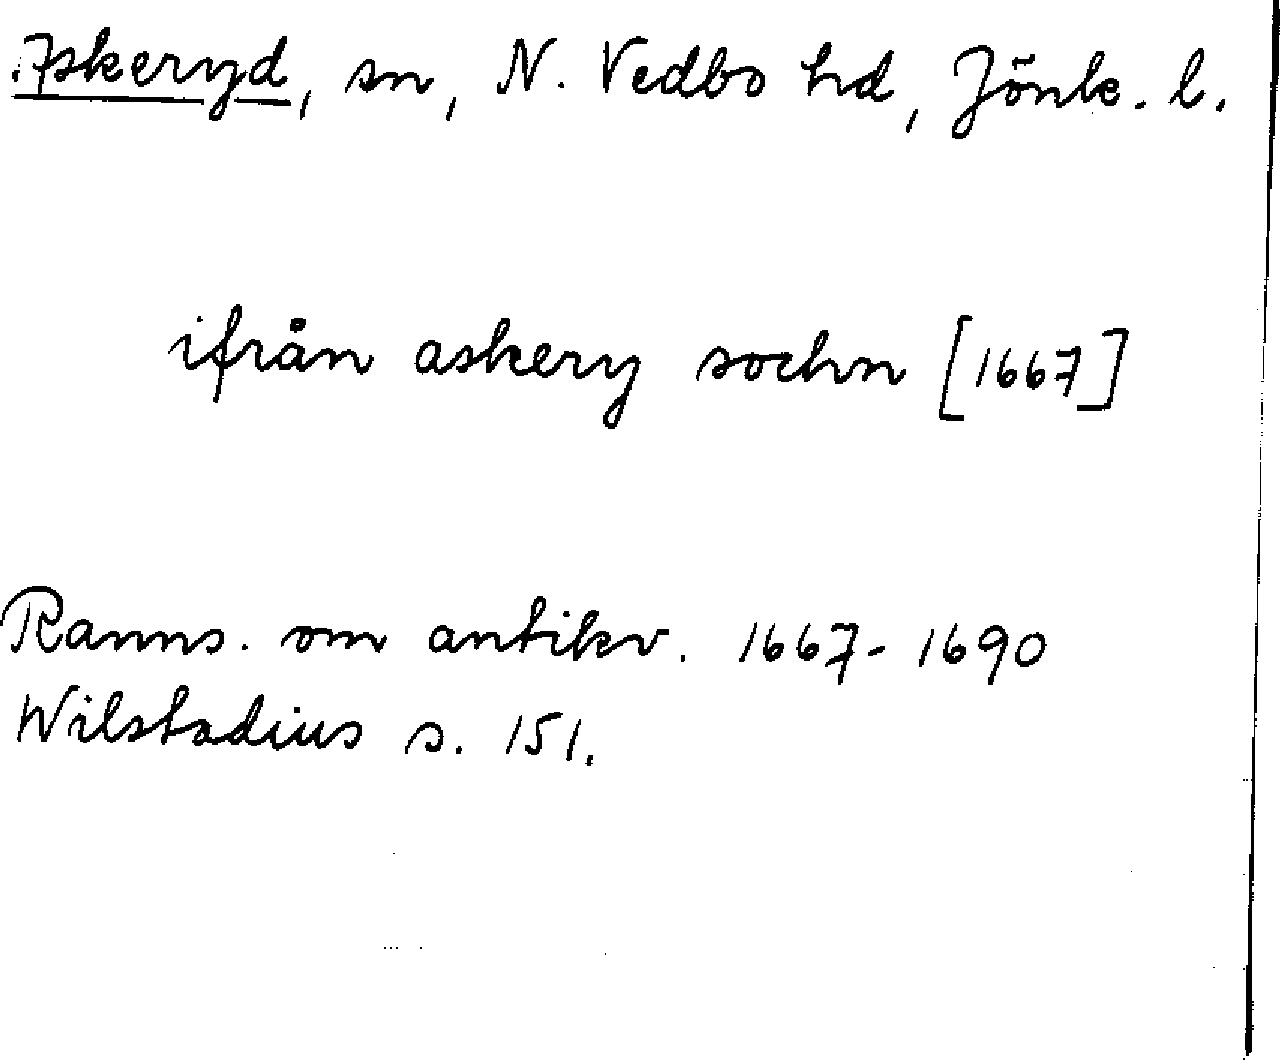 Askeryd, sn, N. Vedbo hd, Jönk. l.
ifrån askery sochn [1667]
Ranns. om antikv. 1667-1690
Wilstadius s. 151.